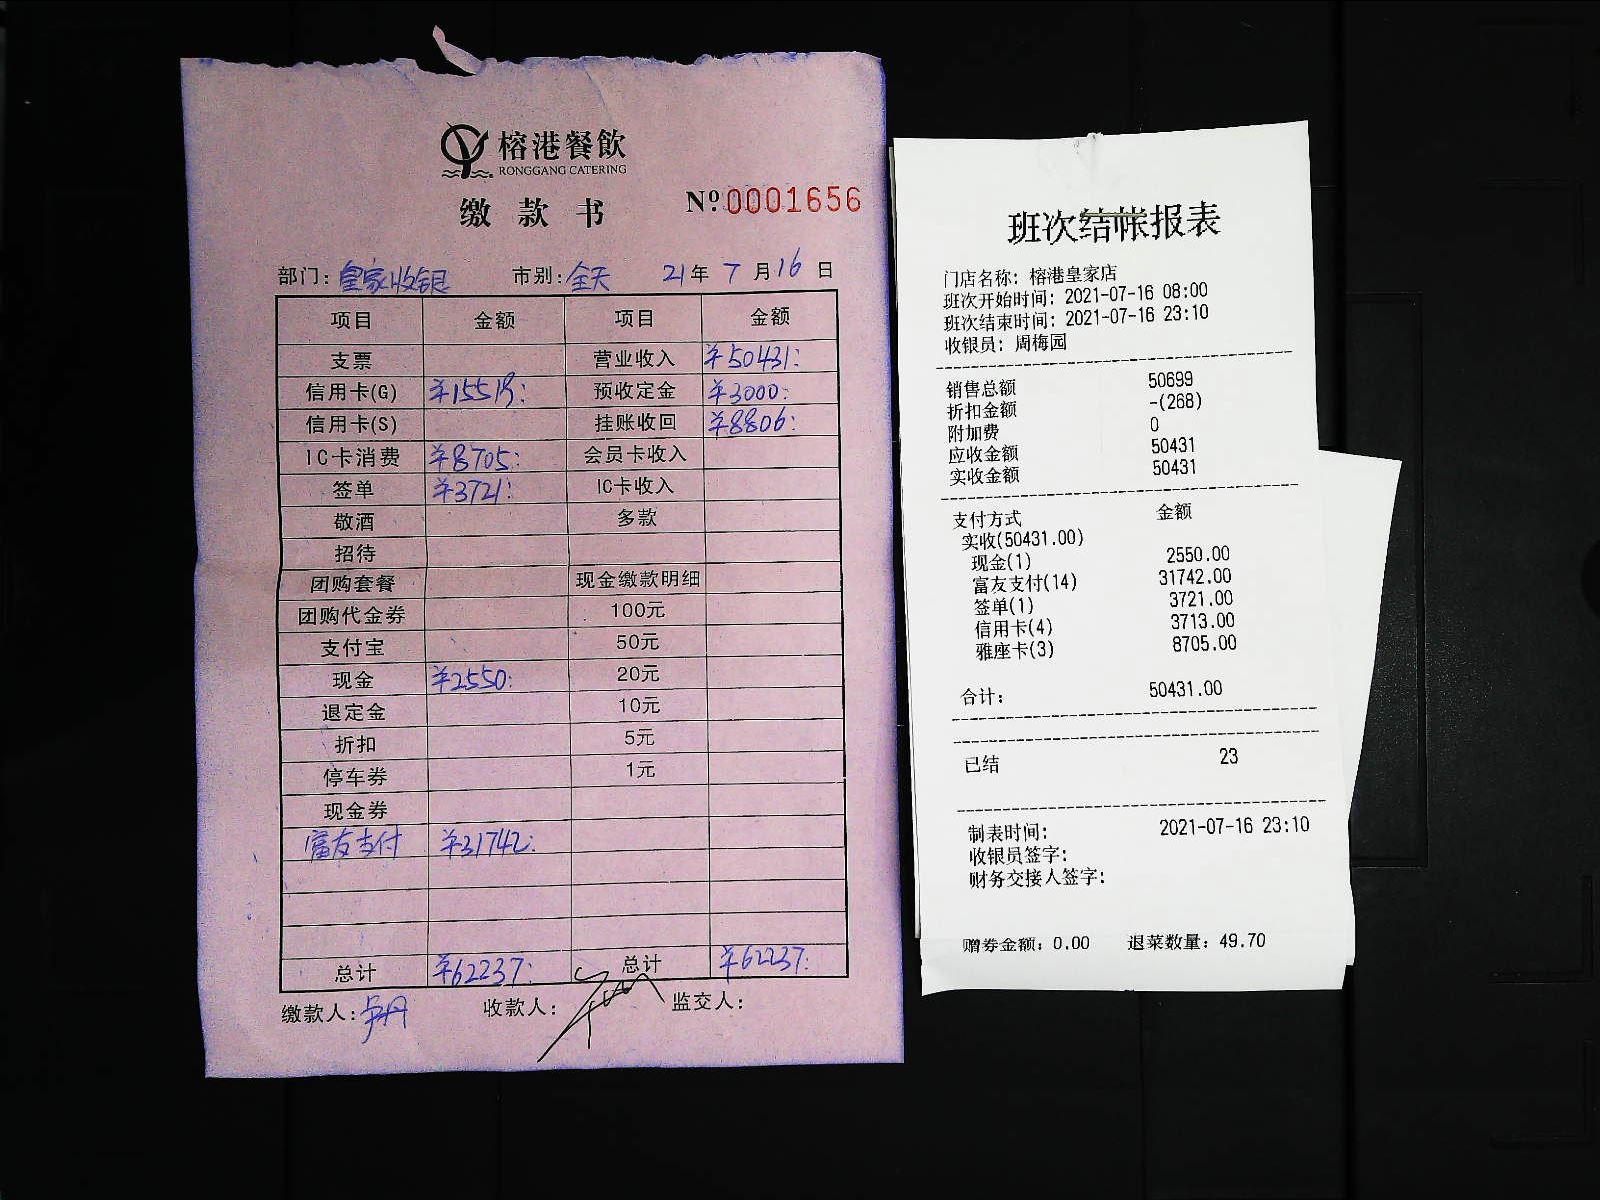 榕港餐飲
RONGGANG CATERING
缴款书
Nº 0001656
部门: 皇家收银 市别: 全天 21年 7月16日
项目 金额 项目 金额
支票 营业收入 ¥50431:
信用卡(G) ¥15519: 预收定金 ¥3000:
信用卡(S) 挂账收回 ¥8806:
IC卡消费 ¥8705: 会员卡收入
签单 ¥3721: IC卡收入
敬酒 多款
招待
团购套餐 现金缴款明细
团购代金券 100元
支付宝 50元
现金 ¥2550: 20元
退定金 10元
折扣 5元
停车券 1元
现金券
富友支付 ¥31742:
总计 ¥62237: 总计 ¥62237:
缴款人: 收款人: 监交人:
班次结帐报表
门店名称: 榕港皇家店
班次开始时间: 2021-07-16 08:00
班次结束时间: 2021-07-16 23:10
收银员: 周梅园
销售总额 50699
折扣金额 -(268)
附加费 0
应收金额 50431
实收金额 50431
支付方式 金额
实收(50431.00)
现金(1) 2550.00
富友支付(14) 31742.00
签单(1) 3721.00
信用卡(4) 3713.00
雅座卡(3) 8705.00
合计: 50431.00
已结 23
制表时间: 2021-07-16 23:10
收银员签字:
财务交接人签字:
赠券金额: 0.00 退菜数量: 49.70